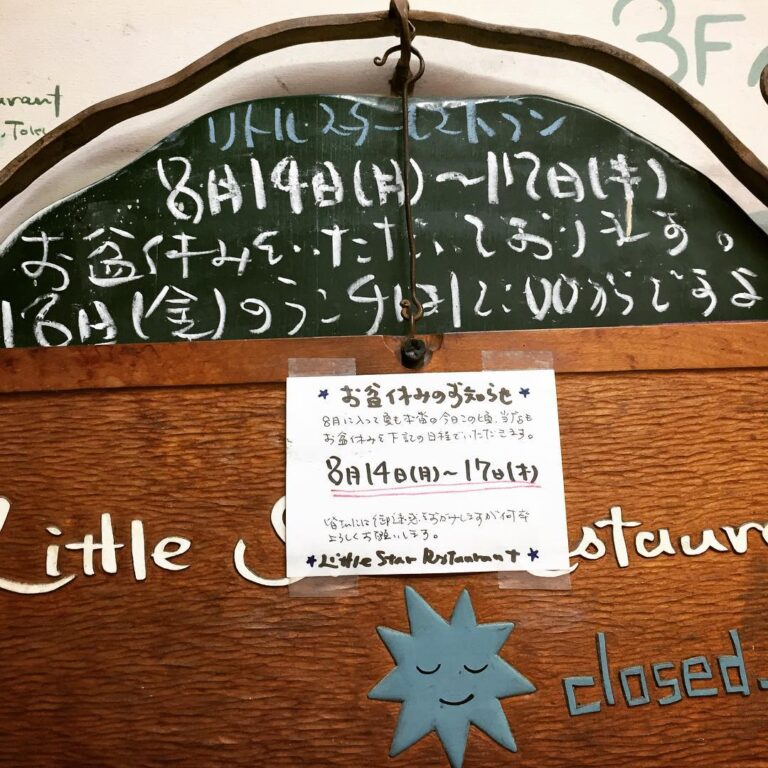 3F
リトルスターレストラン
8月14日(月)〜17日(木)
お盆休みをいただいております。
18日(金)のランチは12:00からですよ
★お盆休みのお知らせ★
8月に入って夏も本番の今日この頃、当店も
お盆休みを下記の日程でいただきます。
8月14日(月)〜17日(木)
皆さんには御迷惑をおかけしますが何卒
よろしくお願いします。
★Little Star Restaurant★
Little S staur
closed.